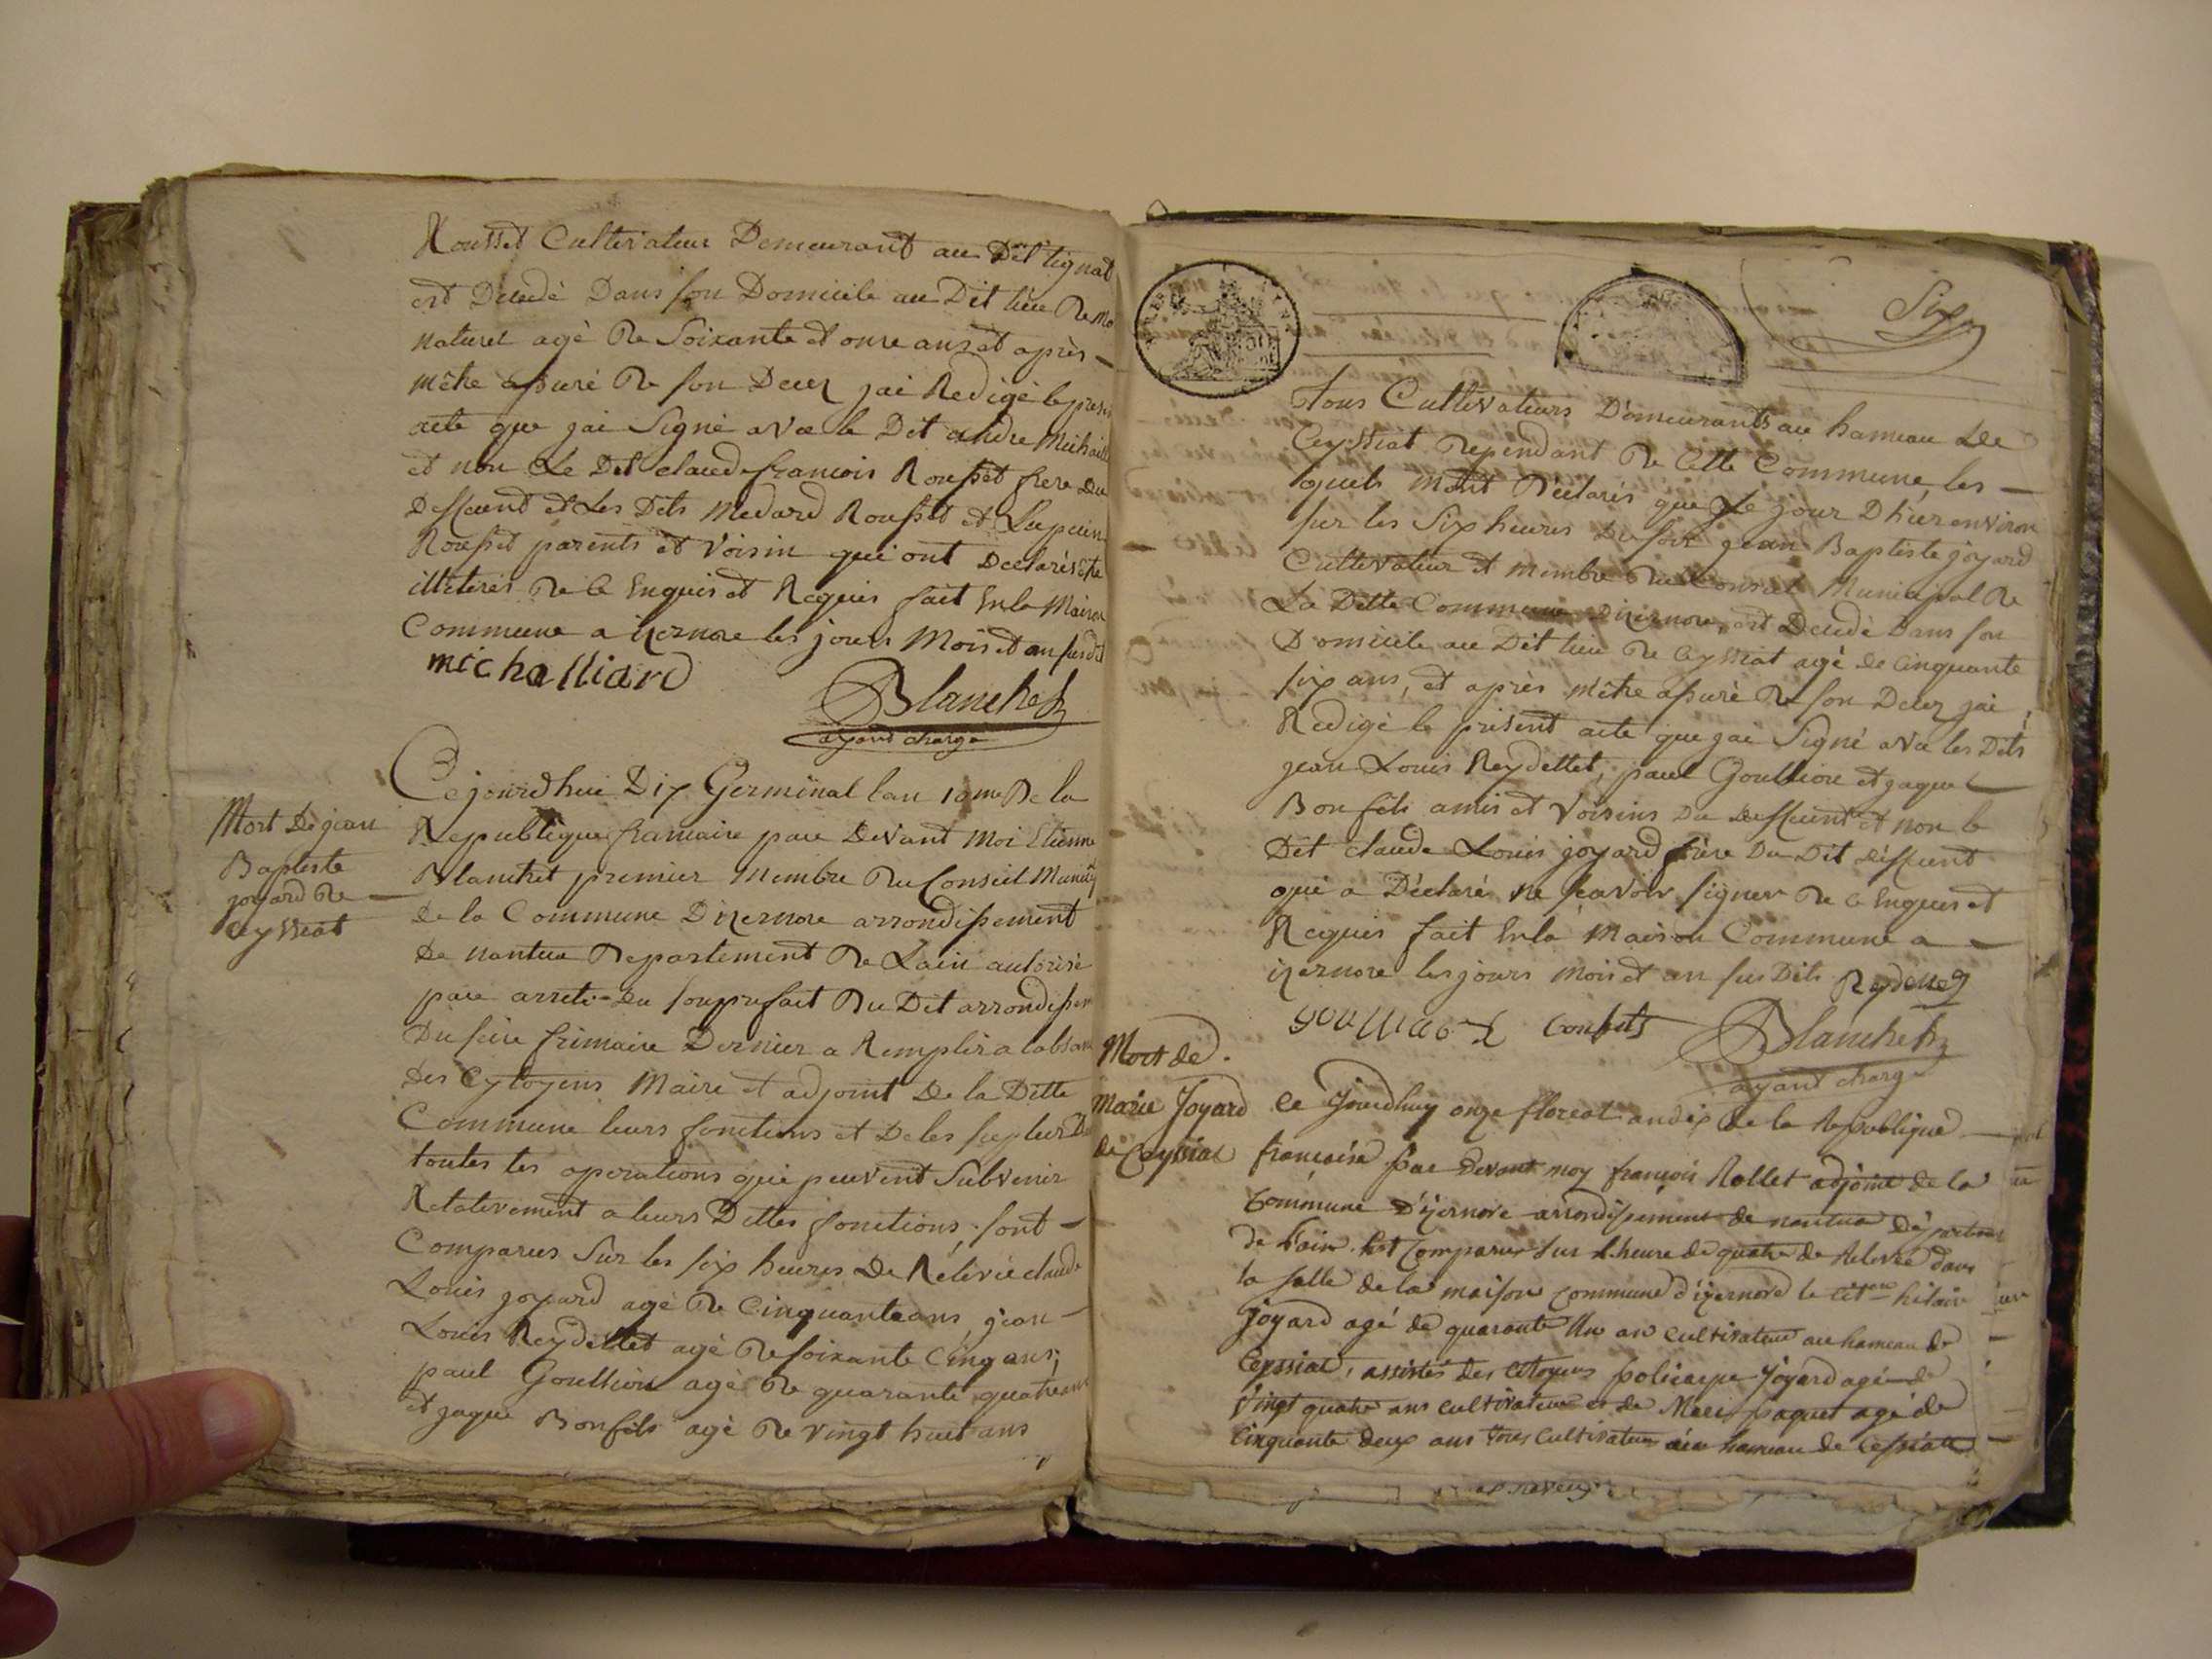 Rousset Cultivateur Demeurant au Dit tignat
est Decedé Dans son Domicile au Dit lieu De mo
naturel agé De Soixante et onze ans et après
mêtre assuré De son Decez jai Redigé le presen
acte que jai Signé avec le Dit andre Michaill
et non Le Dit claude francois Rousset frere du
Deffunt et Les Dits Medard Rousset et Lupicin
Rousset parents et Voisin qui ont Declarés être
illiterés De ce Enquis et Requis fait En la Maison
Commune a izernore les jours Mois et an susdit
michalliard
Blanchet
ayant charge
Mort De jean
Baptiste
joyard De
Ceyssiat
Cejourdhui Dix Germinal lan 10me De la
Republique francaise par Devant Moi Etienne
Blanchet premier Membre Du Conseil Municip
de la Commune Dizernore arrondissement
De nantua Departement De Lain autorisé
par arreté du Souprefait Du Dit arrondissem
Du seize frimaire Dernier a Remplir a labsan
des Cytoyens Maire et adjoint De la Ditte
Commune leurs fonctions et De les supleer Da
toutes les operations qui peuvent Subvenir
Relativement a leurs Dittes fonctions, sont
Comparus Sur les six heures De Relevée claude
Louis joyard agé De Cinquante ans, jean
Louis Reydellet agé De soixante Cinq ans,
paul Goullion agé De quarante quatre ans
et jaque Bonfils agé De vingt huit ans
Six
Tous Cultivateurs Demeurants au hameau De
Ceyssiat Dependant De Cette Commune les
quels mont Déclarés que Le jour Dhier environ
sur les Six heures Du soir jean Baptiste joyard
Cultivateur et membre Du Conseil Municipal De
La Ditte Commune Dizernore, est Decedé Dans son
Domicile au Dit lieu De Ceyssiat agé de Cinquante
six ans, et après mêtre assuré De son Decez jai
Redigé le présent acte que jai Signé avec les Dits
jean Louis Reydellet, paul Goullion et jaque
Bonfils amis et Voisins Du Deffunt et non le
Dit claude Louis joyard frère Du Dit Déffunt
qui a Déclaré ne scavoir signer De ce Enquis et
Requis fait En la Maison Commune a
izernore les jours mois et an sus Dits Reydellet
bonfils
Blanchet
ayant charge
Mort de
Marie Joyard
de Ceyssiat
Ce Jourdhuy onze floreal an dix de la Republique
francaise par devant moy françois Rollet adjoint de la
Commune d'izernore arrondissement de nantua départem
de L'ain. est Comparu sur L'heure de quatre de Relevée dans
la salle de la maison Commune d'izernore le citoyen hilaire
Joyard agé de quarante Un an cultivateur au hameau de
Ceyssiat, assistés des citoyens policarpe Joyard agé de
Vingt quatre ans cultivateur et de paquet agé de
Cinquante deux ans tous Cultivateurs au hameau de Cessiat